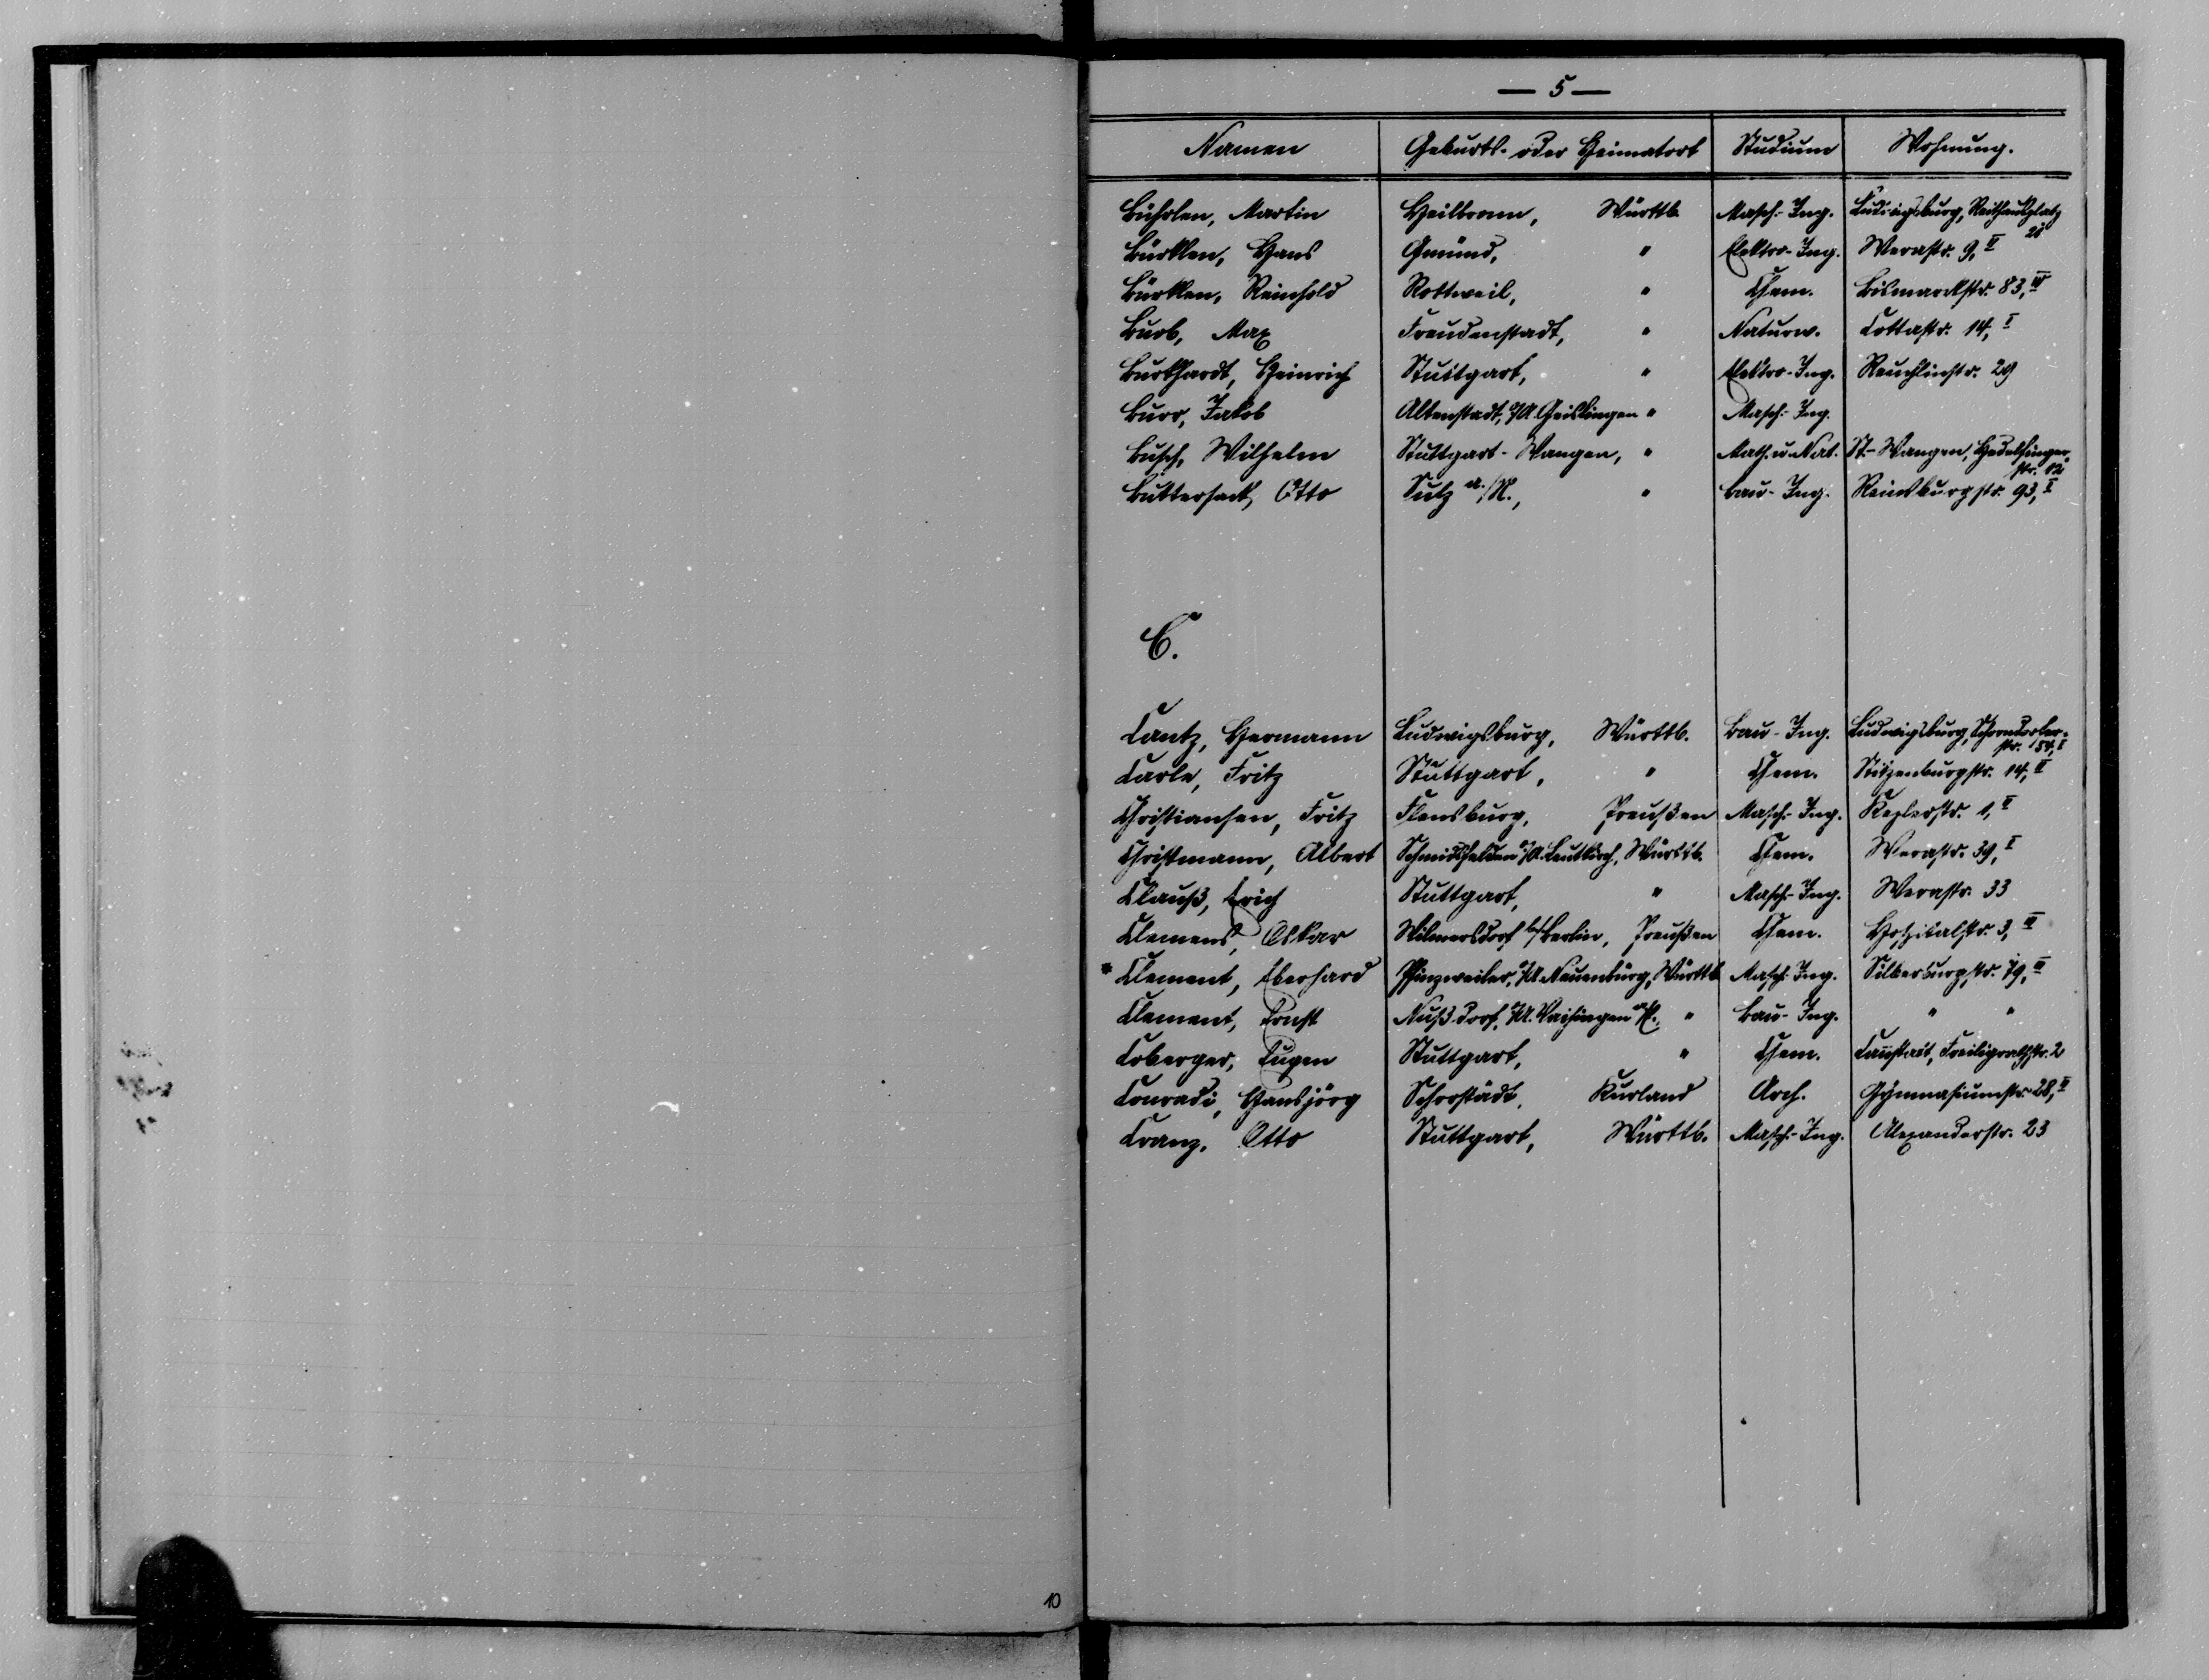 — 5 —
Namen Geburts- oder Heimatort Studium Wohnung.
Bührlen, Martin Heilbronn, Württb. Masch.-Ing. Ludwigsburg, Reithausplatz
20
Bürklen, Hans Gmünd, " Elektro-Ing. Werastr. 9, II
Bürklen, Reinhold Rottweil, " Chem. Bismarckstr. 83, III
Burb, Max Freudenstadt, " Naturw. Cottastr. 14, I
Burkhardt, Heinrich Stuttgart, " Elektro-Ing. Reuchlinstr. 29
Burr, Jakob Altenstadt, O/A. Geislingen " Masch.-Ing.
Busch, Wilhelm Stuttgart-Wangen, " Math. u. Nat. St.-Wangen, Hedelfinger-
str. 12
Buttersack, Otto Sulz a./N., " Bau-Ing. Reinsburgstr. 93, I
C.
Cantz, Hermann Ludwigsburg, Württb. Bau-Ing. Ludwigsburg, Schorndorfer-
str. 154, I
Carle, Fritz Stuttgart, " Chem. Sitzenburgstr. 14, II
Christiansen, Fritz Flensburg, Preußen Masch.-Ing. Keplerstr. 1, II
Christmann, Albert Schmidsfelden O/A. Leutkirch, Württb. Chem. Werastr. 39, I
Clauß, Erich Stuttgart, " Masch.-Ing. Werastr. 33
Clemens, Oskar Wilmersdorf b/Berlin, Preußen Chem. Hospitalstr. 3, III
* Clement, Eberhard Pfinzweiler, O/A. Neuenbürg, Württb. Masch.-Ing. Silberburgstr. 79, III
Clement, Ernst Nußdorf, O/A. Vaihingen a/E., " Bau-Ing. " "
Coberger, Eugen Stuttgart, " Chem. Cannstatt, Freiligrathstr. 2
Conradi, Hansjörg Schorstädt, Kurland Arch. Gymnasiumstr. 28, II
Cranz, Otto Stuttgart, Württb. Masch.-Ing. Alexanderstr. 23
10